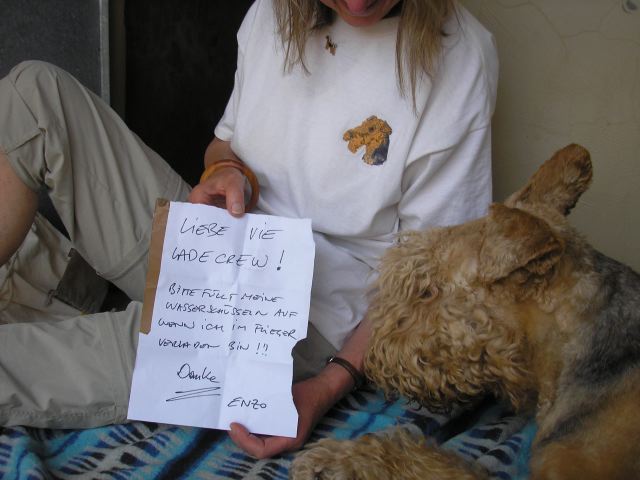 LIEBE VIE
LADECREW!
BITTE FÜLLT MEINE
WASSERSCHÜSSELN AUF
WENN ICH IM FLIEGER
VERLADEN BIN!!!
Danke
ENZO